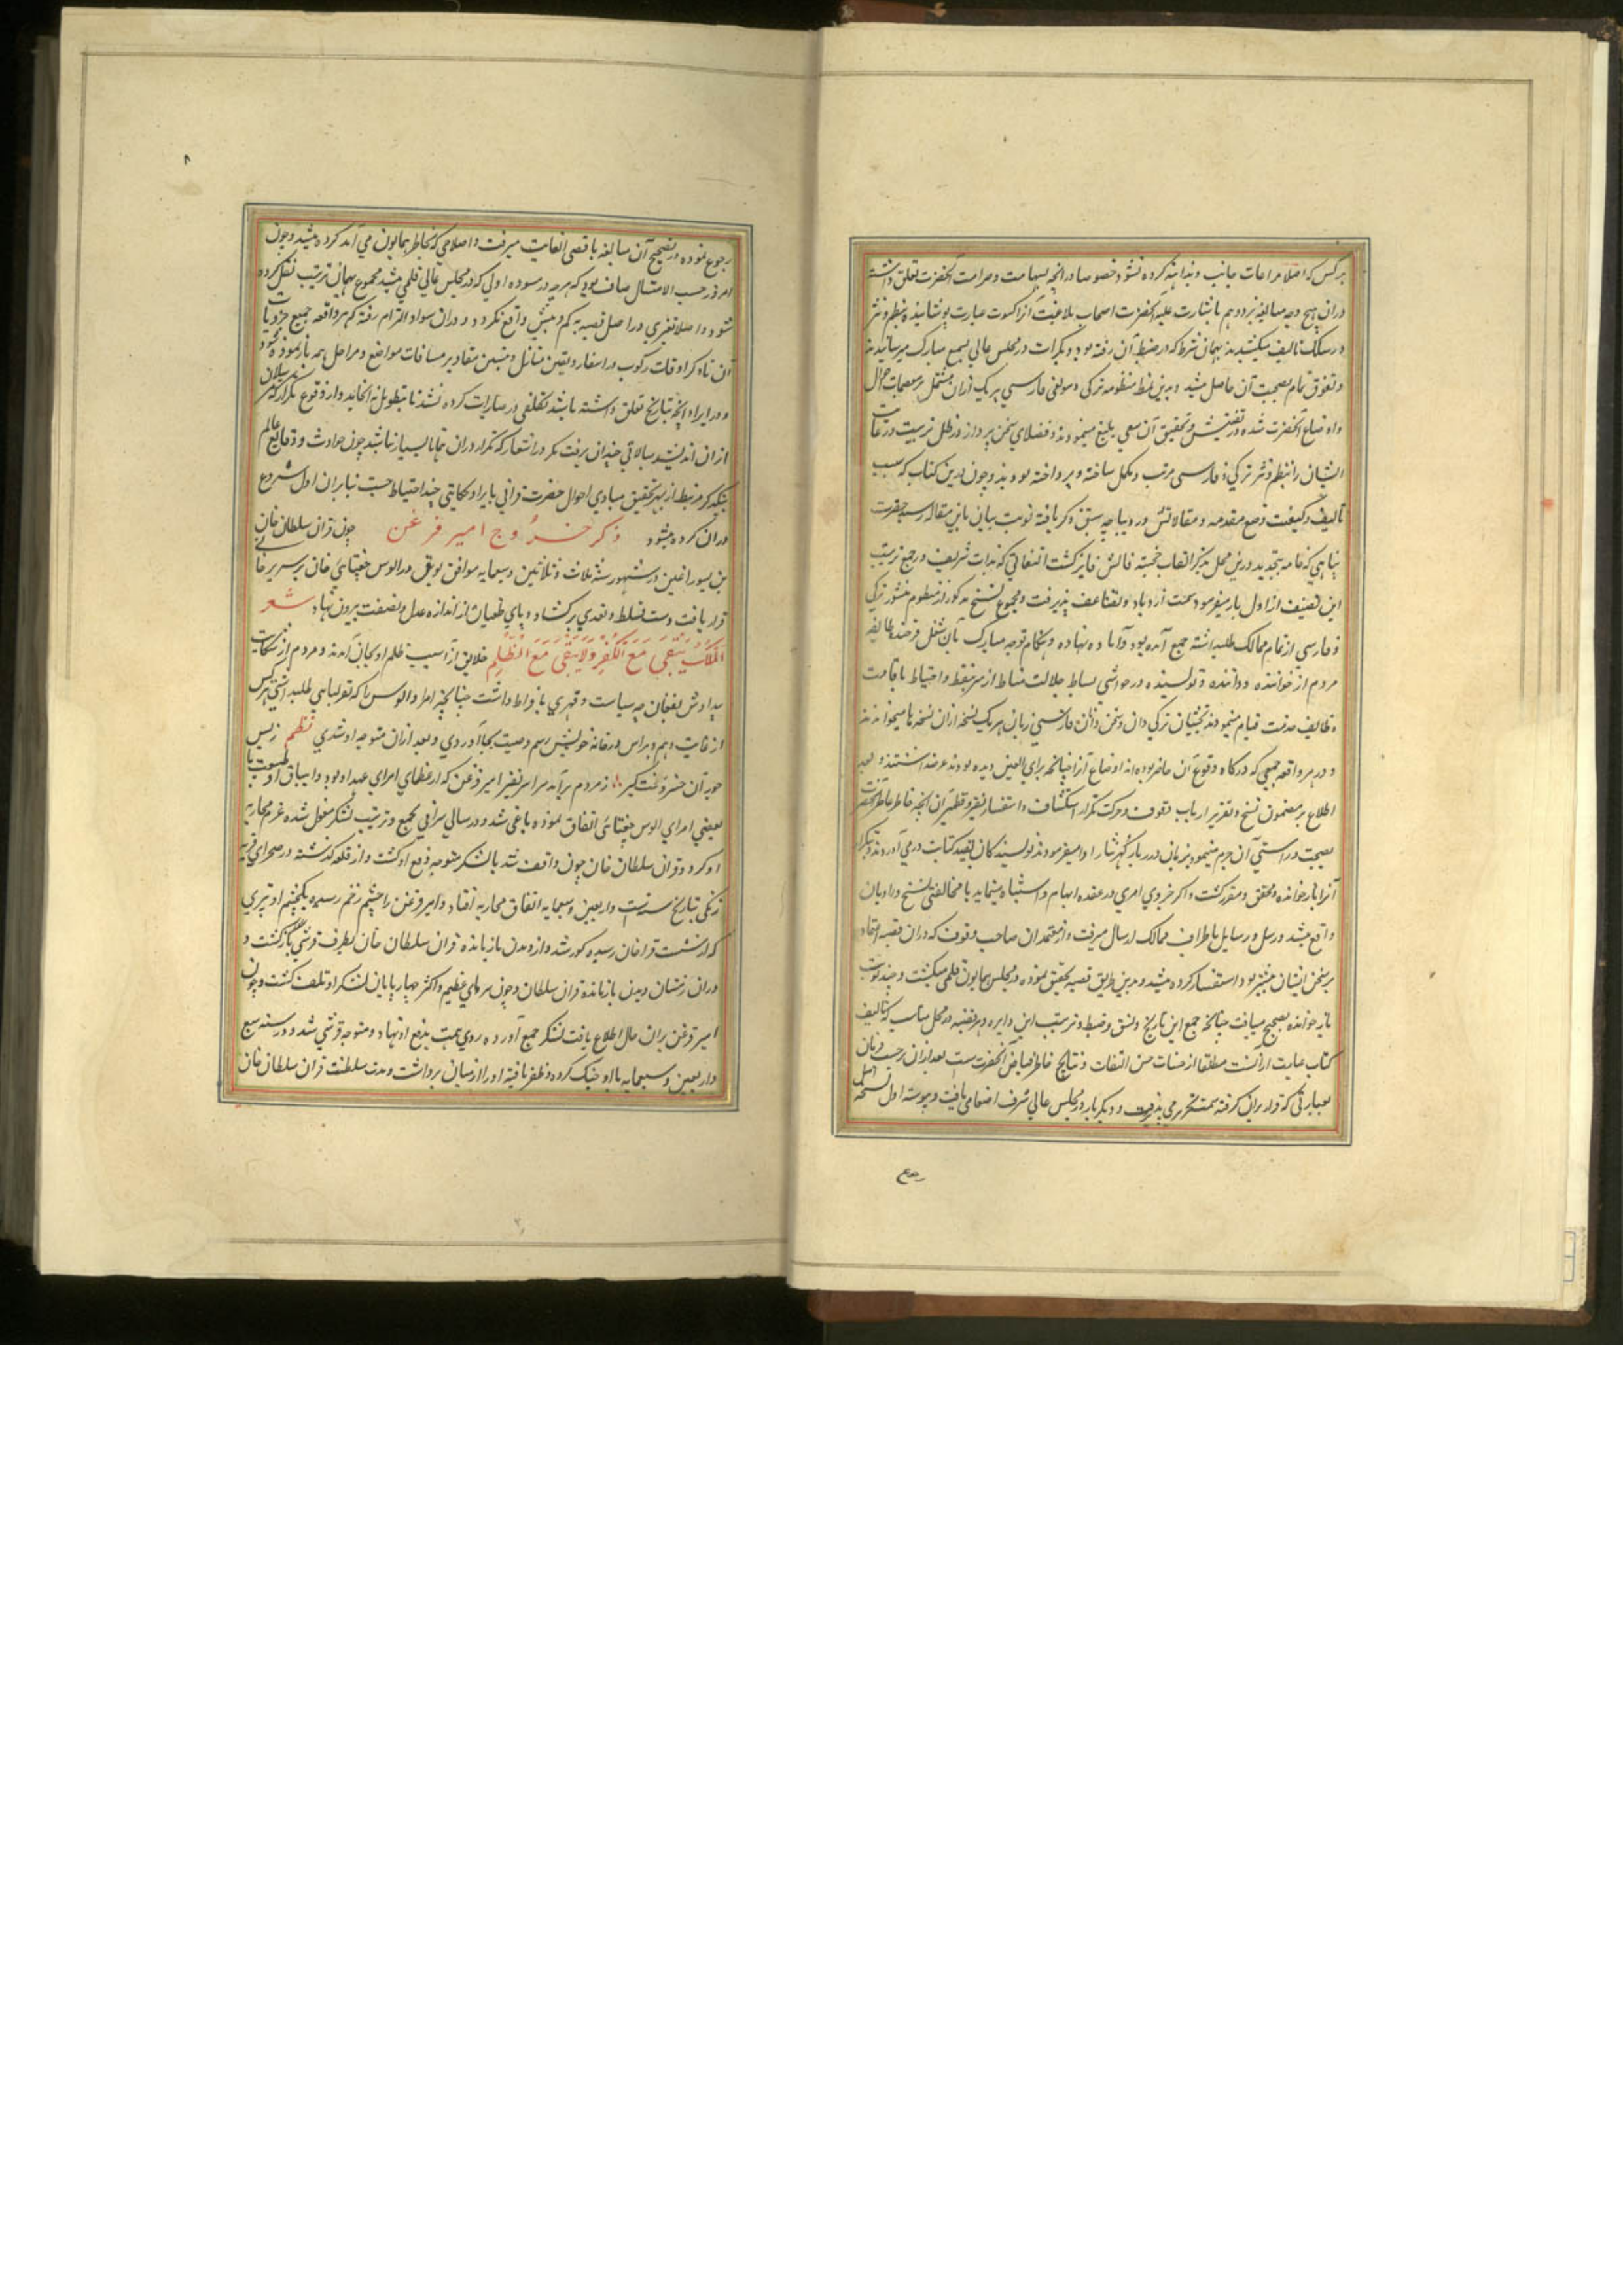 هر کس که اصلا مراعات جانب و مداهنه کرده نشود خصوصا در انچه بشهامت و صرامت آنحضرت تعلق داشته
دران هیچ وجه مبالغه نرود و هم باشارت علیه آنحضرت اصحاب بلاغت آنرا کسوت عبارت پوشانیده بنظم و نثر
در سلک تالیف میکشیدند بهمان شرط که در ضبط آن رفته بود و بکرات در مجلس عالی بسمع مبارک میرسانیدند
و وثوق تمام بصحت آن حاصل میشد و بدین نمط منظومه ترکی و مولفی فارسی هر یک ازان مشتمل بر معظمات احوال
و اوضاع آنحضرت شده در تفتیش و تحقیق آن سعی بلیغ مینمودند و فضلای سخن پرداز در ظل تربیت و رعایت
ایشان را بنظم و نثر ترکی و فارسی مرتب و مکمل ساخته و پرداخته بودند و چون درین کتاب که سبب
تالیف و کیفیت وضع مقدمه و مقالاتش در دیباچه سبق ذکر یافته نوبت بیانی باین مقاله رسید حضرت
پناهی که خامه بتجدید درین محل بذکر القاب خجسته فالش فایز گشت التفاتی که بذات شریف در جمع و ترتیب
این تصنیف از اول بار میفرمود سمت ازدیاد و تضاعف پذیرفت و مجموع نسخ مذکور از منظوم و منثور ترکی
و فارسی از تمام ممالک طلب داشته جمع آمده بود و آماده نهاده و هنگام توجه مبارک بآن شغل فرخنده طایفه
مردم از خواننده و داننده و نویسنده در حواشی بساط جلالت مناط از سر تیقظ و احتیاط باقامت
وظایف خدمت قیام مینمودند بخشیان ترکی دان و سخن دانان فارسی زبان هر یک نسخه ازان نسخها میخواندند
و در هر واقعه جمعی که در گاه وقوع آن حاضر بوده‌اند و اوضاع آنرا چنانچه برای العین دیده بودند عرضه داشتند و بعد
اطلاع بر مضمون نسخ و تقریر ارباب وقوف و حرکت تکرار استکشاف و استفسار نقیر و قطمیر آن انچه خاطر عاطر آنحضرت
بصحت و راستی آن جزم مینمود بزبان درر بار گهر نثار ادا میفرمود و نویسندگان بقید کتابت در می آوردند و بتکرار
آنرا باز خوانده و محقق و مقرر گشت و اگر جزوی امری در عقده ابهام و اشتباه مینماید یا مخالفتی نسخ و راویان
واقع میشد رسل و رسایل باطراف ممالک ارسال میرفت و از معتمدان صاحب وقوف که دران قضیه اعتماد
بر سخن ایشان بیشتر بود استفسار کرده میشد و بدین طریق قضیه بقضیه تحقیق نموده در مجلس همایون قلمی میگشت و چند نوبت
باز خوانده بصحیح میافت چنانچه جمع این تاریخ و نسق و ضبط و ترتیب این دایره و هر قضیه در محل مناسب که تالیف
کتاب عبارت از آنست مطلقا از حسنات حسن التفات و نتایج خاطر فیاض آنحضرتست بعد ازان بر حسب فرمان
بعبارتی که قرار بران گرفته بسمت تحریر می پذیرفت و دیگر بار در مجلس عالی شرف اصغا می یافت و پیوسته اول نسخه اصل
رجع
۸
رجوع نموده در تصحیح آن مبالغه باقصی الغایت میرفت و اصلاحی که بخاطر همایون می آمد کرده میشد و چون
امر قدر حسب الامتثال صاف بود که هر چه در مسوده اولی که در مجلس عالی قلمی میشد مجموع بهمان ترتیب نقل کرده
شود و اصلا تغیری در اصل قصیه بکم و بیش واقع نگردد و دران سواد التزام رفته که هر واقعه جمیع جزویات
آن تا ذکر اوقات رکوب در اسفار و تعین منازل و تبیین مقادیر مسافات مواضع و مراحل همه باز نموده شود
و در ایراد انچه بتاریخ تعلق داشته باشد تکلفی در عبارات کرده نشد تا بتطویل نه انجامد و از وقوع تکرار که
ازان اندیشند مبالاتی چندان نرفت مگر در اشعار که تکرار دران همانا بسیار نباشد چون حوادث و وقایع عالم
بیکدیگر مرتبط از بهر تحقیق مبادی احوال حضرت صاحب قرانی بایراد حکایتی چند احتیاجست بنابران اول شروع
دران کرده میشود ذکر خروج امیر قزغن چون قزان سلطان خان
بن یسور اغلن در شهور سنه ثلاث و ثلاثین و سبعمایه موافق یونتی در الوس جغتای خان بر سریر خانی
قرار یافت دست تسلط و تعدی برکشاد و پای طغیان از اندازه عدل و نصفت بیرون نهاد شعر
اَلمُلکُ یَبْقیٰ مَعَ الکُفْرِ وَلایَبْقیٰ مَعَ الظُلْمِ خلایق از آسیب ظلم او بجان آمدند و مردم از نکایت
بیدادش بفغان چه سیاست و قهری بافراط داشت چنانچه امرا و الوس را که بقورلتای طلب داشتی هر کس
از غایت وهم و هراس در خانه خویش رسم وصیت بجا آوردی و بعد ازان متوجه او شدی نظم ز بس
جور آن خسرو سخت گیر ز مردم برآمد سراسر نفیر امیر قزغن که از عظمای امرای عهد او بود در ایباق او
بعضی امرای الوس جغتای اتفاق نموده یاغی شد و در سالی سرای بجمع و ترتیب لشکر مشغول شده عزم محاربه
او کرد و قزان سلطان خان چون واقف شد با لشکر متوجه دفع او گشت و از قهلغه گذشته در صحرای قریه
زنگی بتاریخ سنه ست و اربعین و سبعمایه اتفاق محاربه افتاد و امیر قزغن را چشم زخم رسید و یکچشم او بتیری
که از شست قزان خان رسید کور شد و از دیدن باز مانده قزان سلطان خان بطرف قرشی باز گشت و
دران زمستان دیدن باز مانده قزان سلطان و چون سرمای عظیم و اکثر چهار پایان لشکر او تلف گشت و چون
امیر قزغن بران حال اطلاع یافت لشکر جمع آورده روی همت بدفع او نهاد و متوجه قرشی شد و در سنه سبع
و اربعین و سبعمایه با او جنگ کرده و ظفر یافته او را از میان برداشت و مدت سلطنت قزان سلطان خان